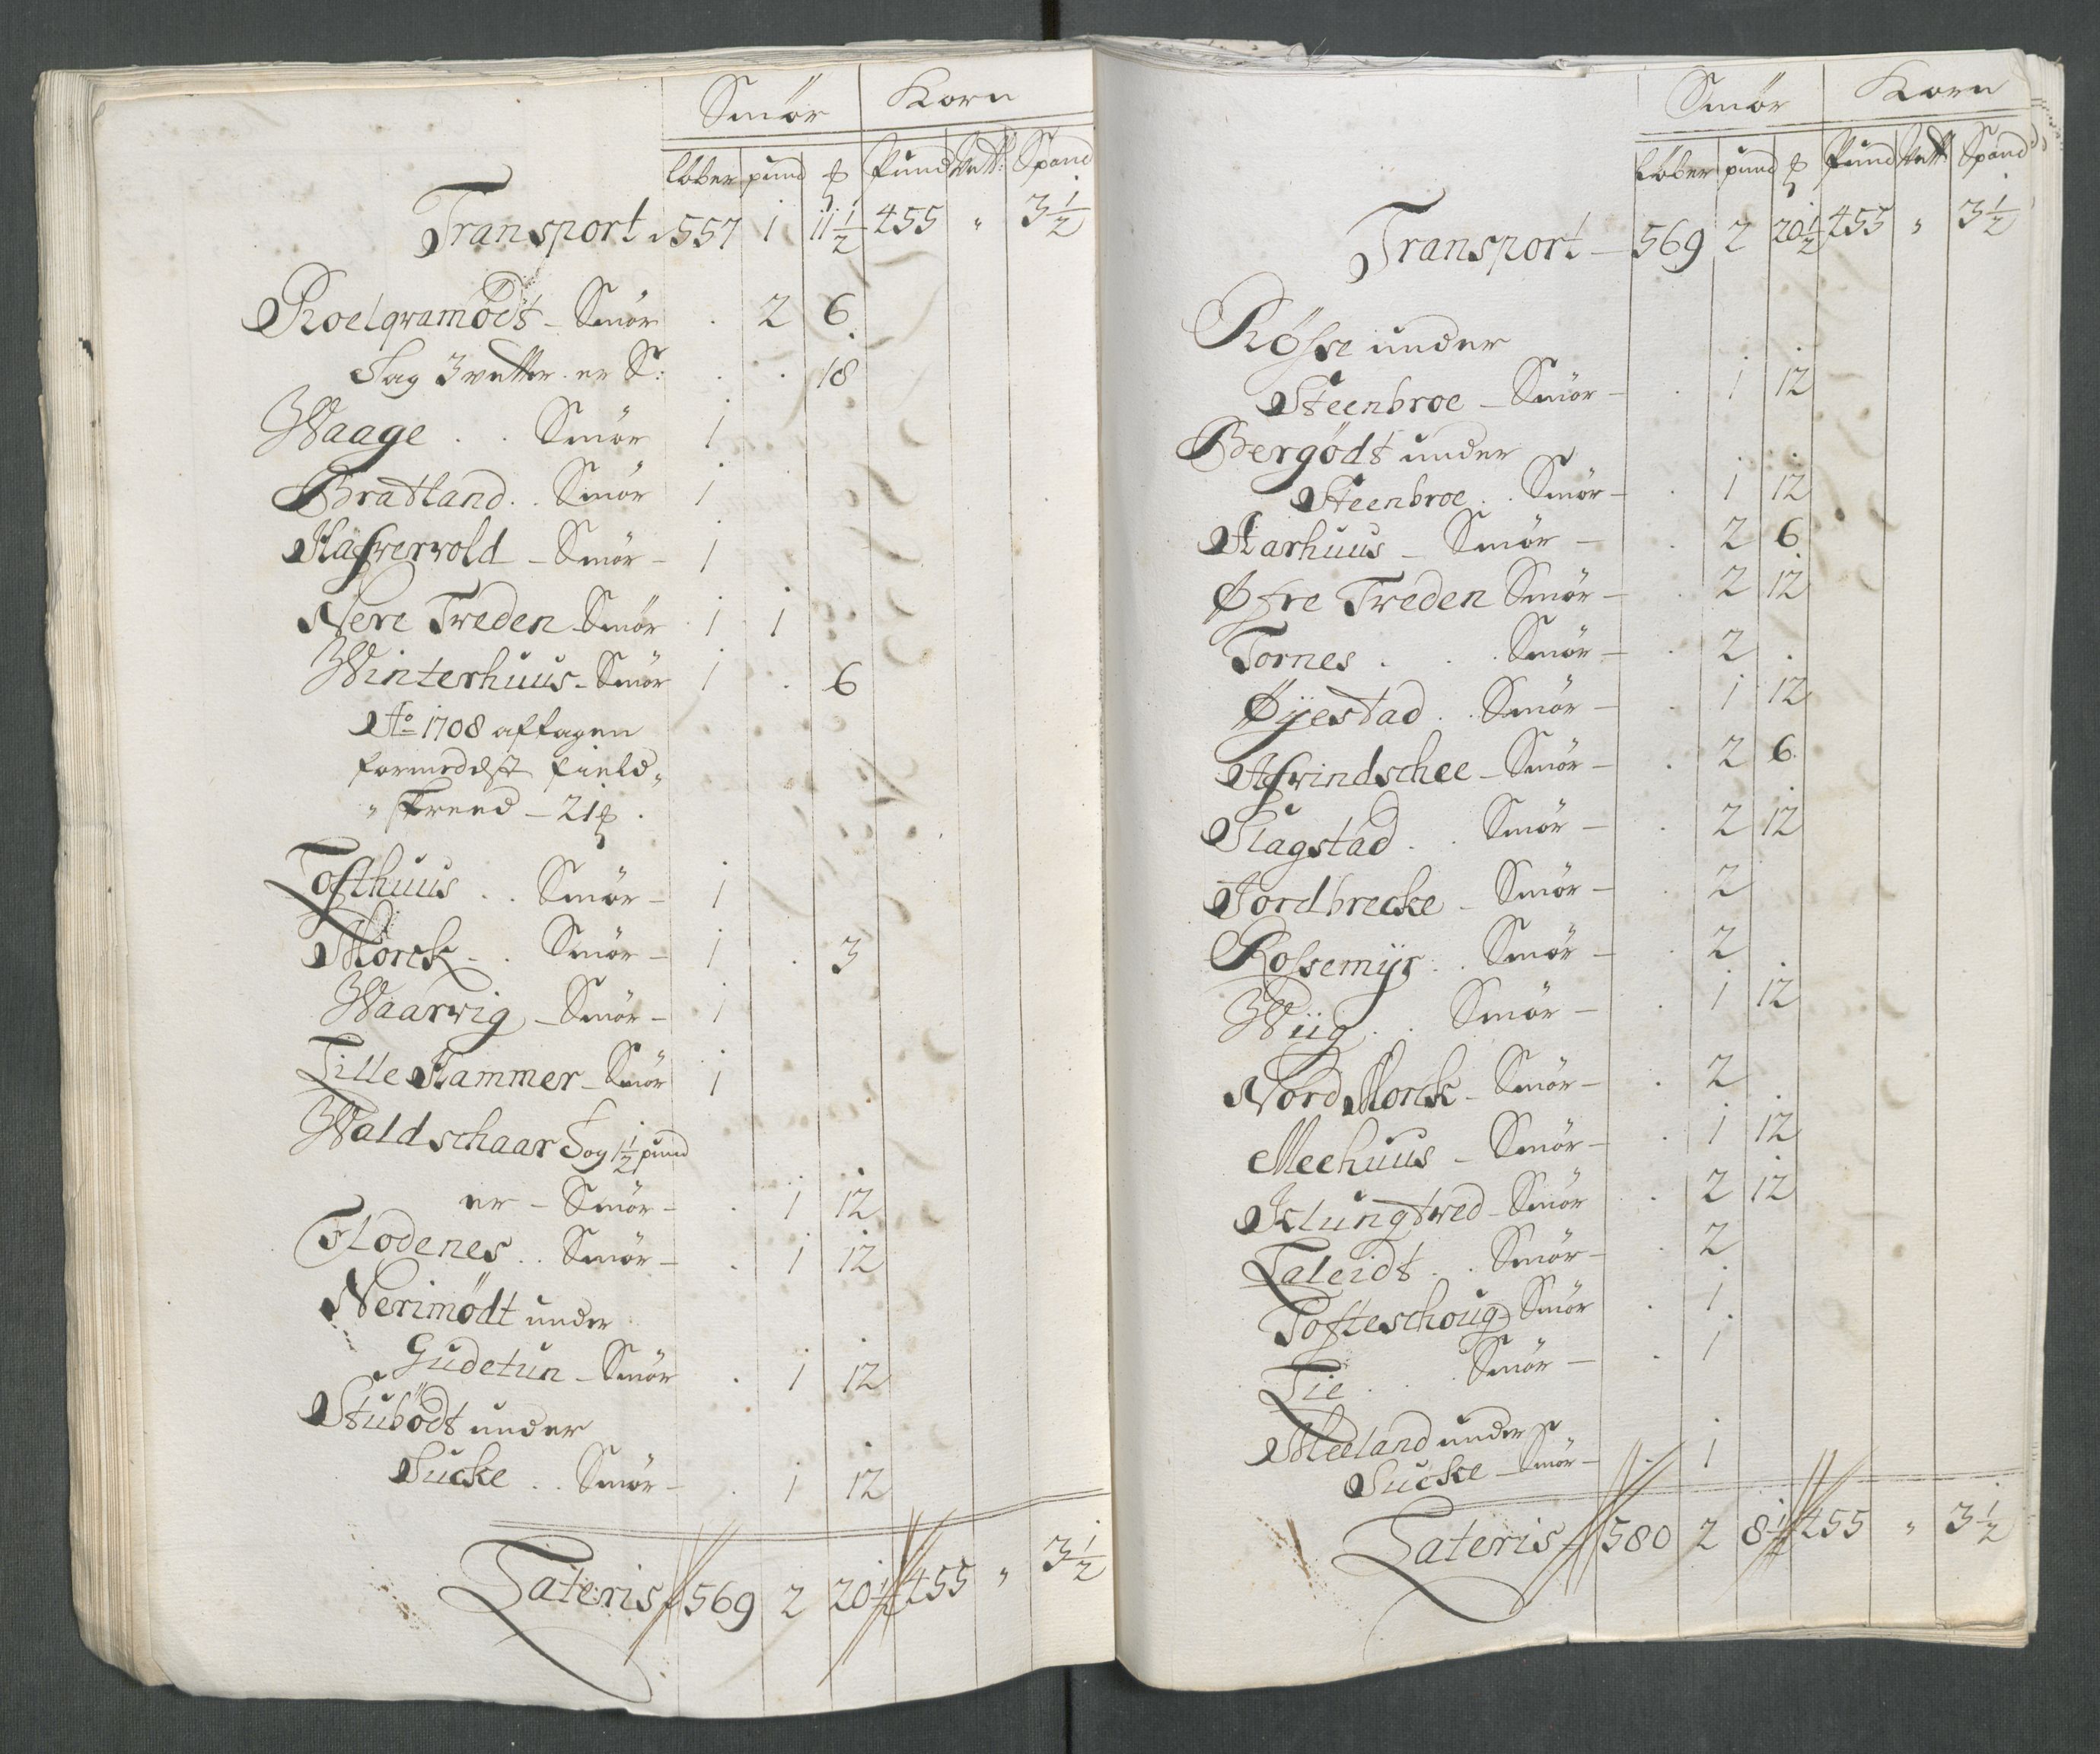 Smör Korn
löber pund ℔ Pund Vett: Spand
Transport 557 1 11½ 455 " 3½
Roelqvamödt - Smör . 2 6
Sag 3 vetter er S: . . 18
Waage . . Smör 1
Bratland . . Smör 1
Hafwerwold - Smör - 1
Nere Treden Smör 1 1
Winterhuus - Smör 1 . 6
Ao 1708 aftagen
formedelst field„
„ skreed - 21 ℔ .
Tofthuus . . Smör - 1
Morck - . Smör - 1 . 3
Waarwig - Smör - 1
Lille Hammer - Smör 1
Waldschaar Sog 1½ pund
er - Smör - . 1 12
Flodenes . . Smör - . 1 12
Nerimödt under
Gudetun - Smör . 1 12
Stubödt under
Sucke . . Smör - . 1 12
Lateris 569 2 20½ 455 " 3½
Smör Korn
Löber pund ℔ Pund Vett: Spand
Transport - 569 2 20½ 455 " 3½
Rösse under
Steenbroe - Smör - . 1 12
Bergödt under
Steenbroe . . Smör - . 1 12
Aarhuus - Smör - . 2 6
Øfre Treden Smör - . 2 12
Tornes . . . Smör - . 2 .
Øyestad . . Smör - . 1 12
Afwindschee - Smör - . 2 6
Slagstad . . Smör - . 2 12
Jordbrecke - Smör - . 2
Rossemyr . . Smör - . 2
Wiig . . Smör - . 1 12
Nord Morck - Smör - . 2
Meehuus - Smör - . 1 12
Islungtwed - Smör . 2 12
Laleidt . . Smör - . 2
Tofteschoug - Smör . 1
Lie . . . Smör - . 1
Meeland under
Sucke - Smör - . 1
Lateris - 580 2 8½ 455 " 3½